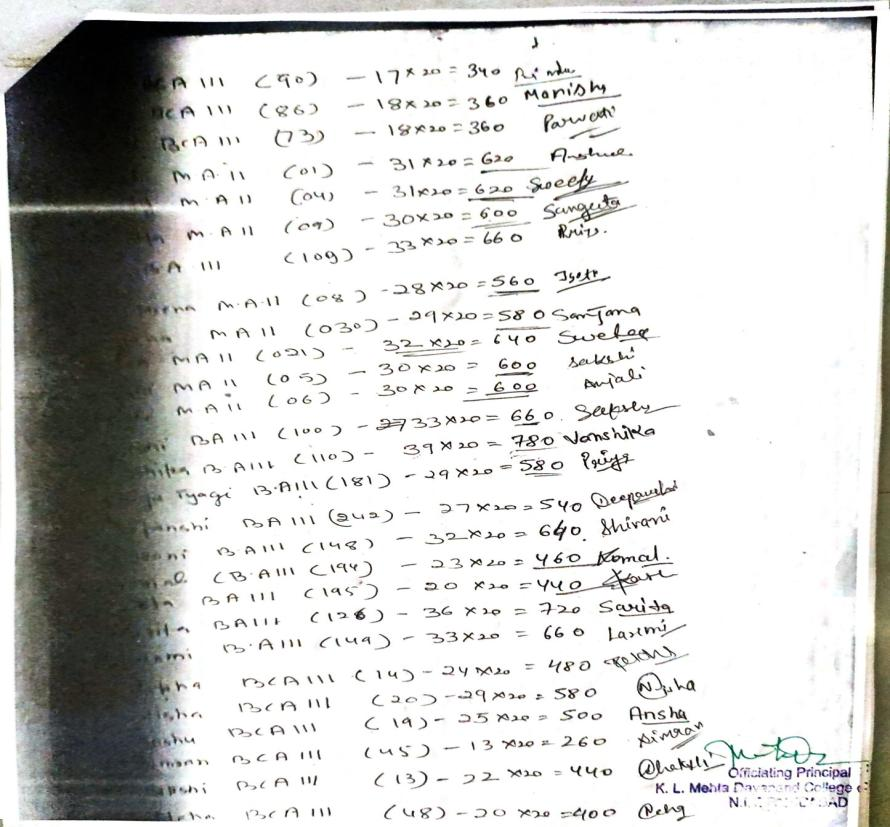 BCA III (90) - 17x20 = 340 Rindu
BCA III (86) - 18x20 = 360 Manisha
BCA III (73) - 18x20 = 360 Parwati
M.A II (01) - 31x20 = 620
M.A II (04) - 31x20 = 620 Sweety
M.A II (09) - 30x20 = 600 Sangeeta
BA III (109) - 33x20 = 660
M.A II (08) - 28x20 = 560 Jyoti
MA II (030) - 29x20 = 580 Sanjana
MA II (021) - 32x20 = 640
MA II (05) - 30x20 = 600 Sakshi
M.A II (06) - 30x20 = 600 Anjali
BA III (100) - 33x20 = 660
B.A III (110) - 39x20 = 780 Vanshika
Tyagi B.A III (181) - 29x20 = 580 Priya
BA III (242) - 27x20 = 540 Deepanshi
BA III (148) - 32x20 = 640. Shivani
(B.A III (194) - 23x20 = 460 Komal.
BA III (195) - 20x20 = 440
BA III (126) - 36x20 = 720 Sarita
B.A III (149) - 33x20 = 660 Laxmi
BCA III (14) - 24x20 = 480
BCA III (20) - 29x20 = 580 Nisha
BCA III (19) - 25x20 = 500 Ansha
BCA III (45) - 13x20 = 260 Simran
BCA III (13) - 22x20 = 440
BCA III (48) - 20x20 = 400 Neha
Officiating Principal
K. L. Mehta Dayanand College